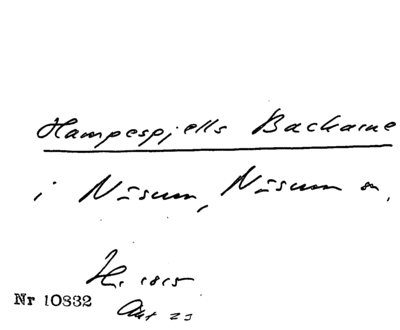 Hampespjells Backarne
i Näsum, Näsum sn,
H. 1815
Nr 10832
Akt 23